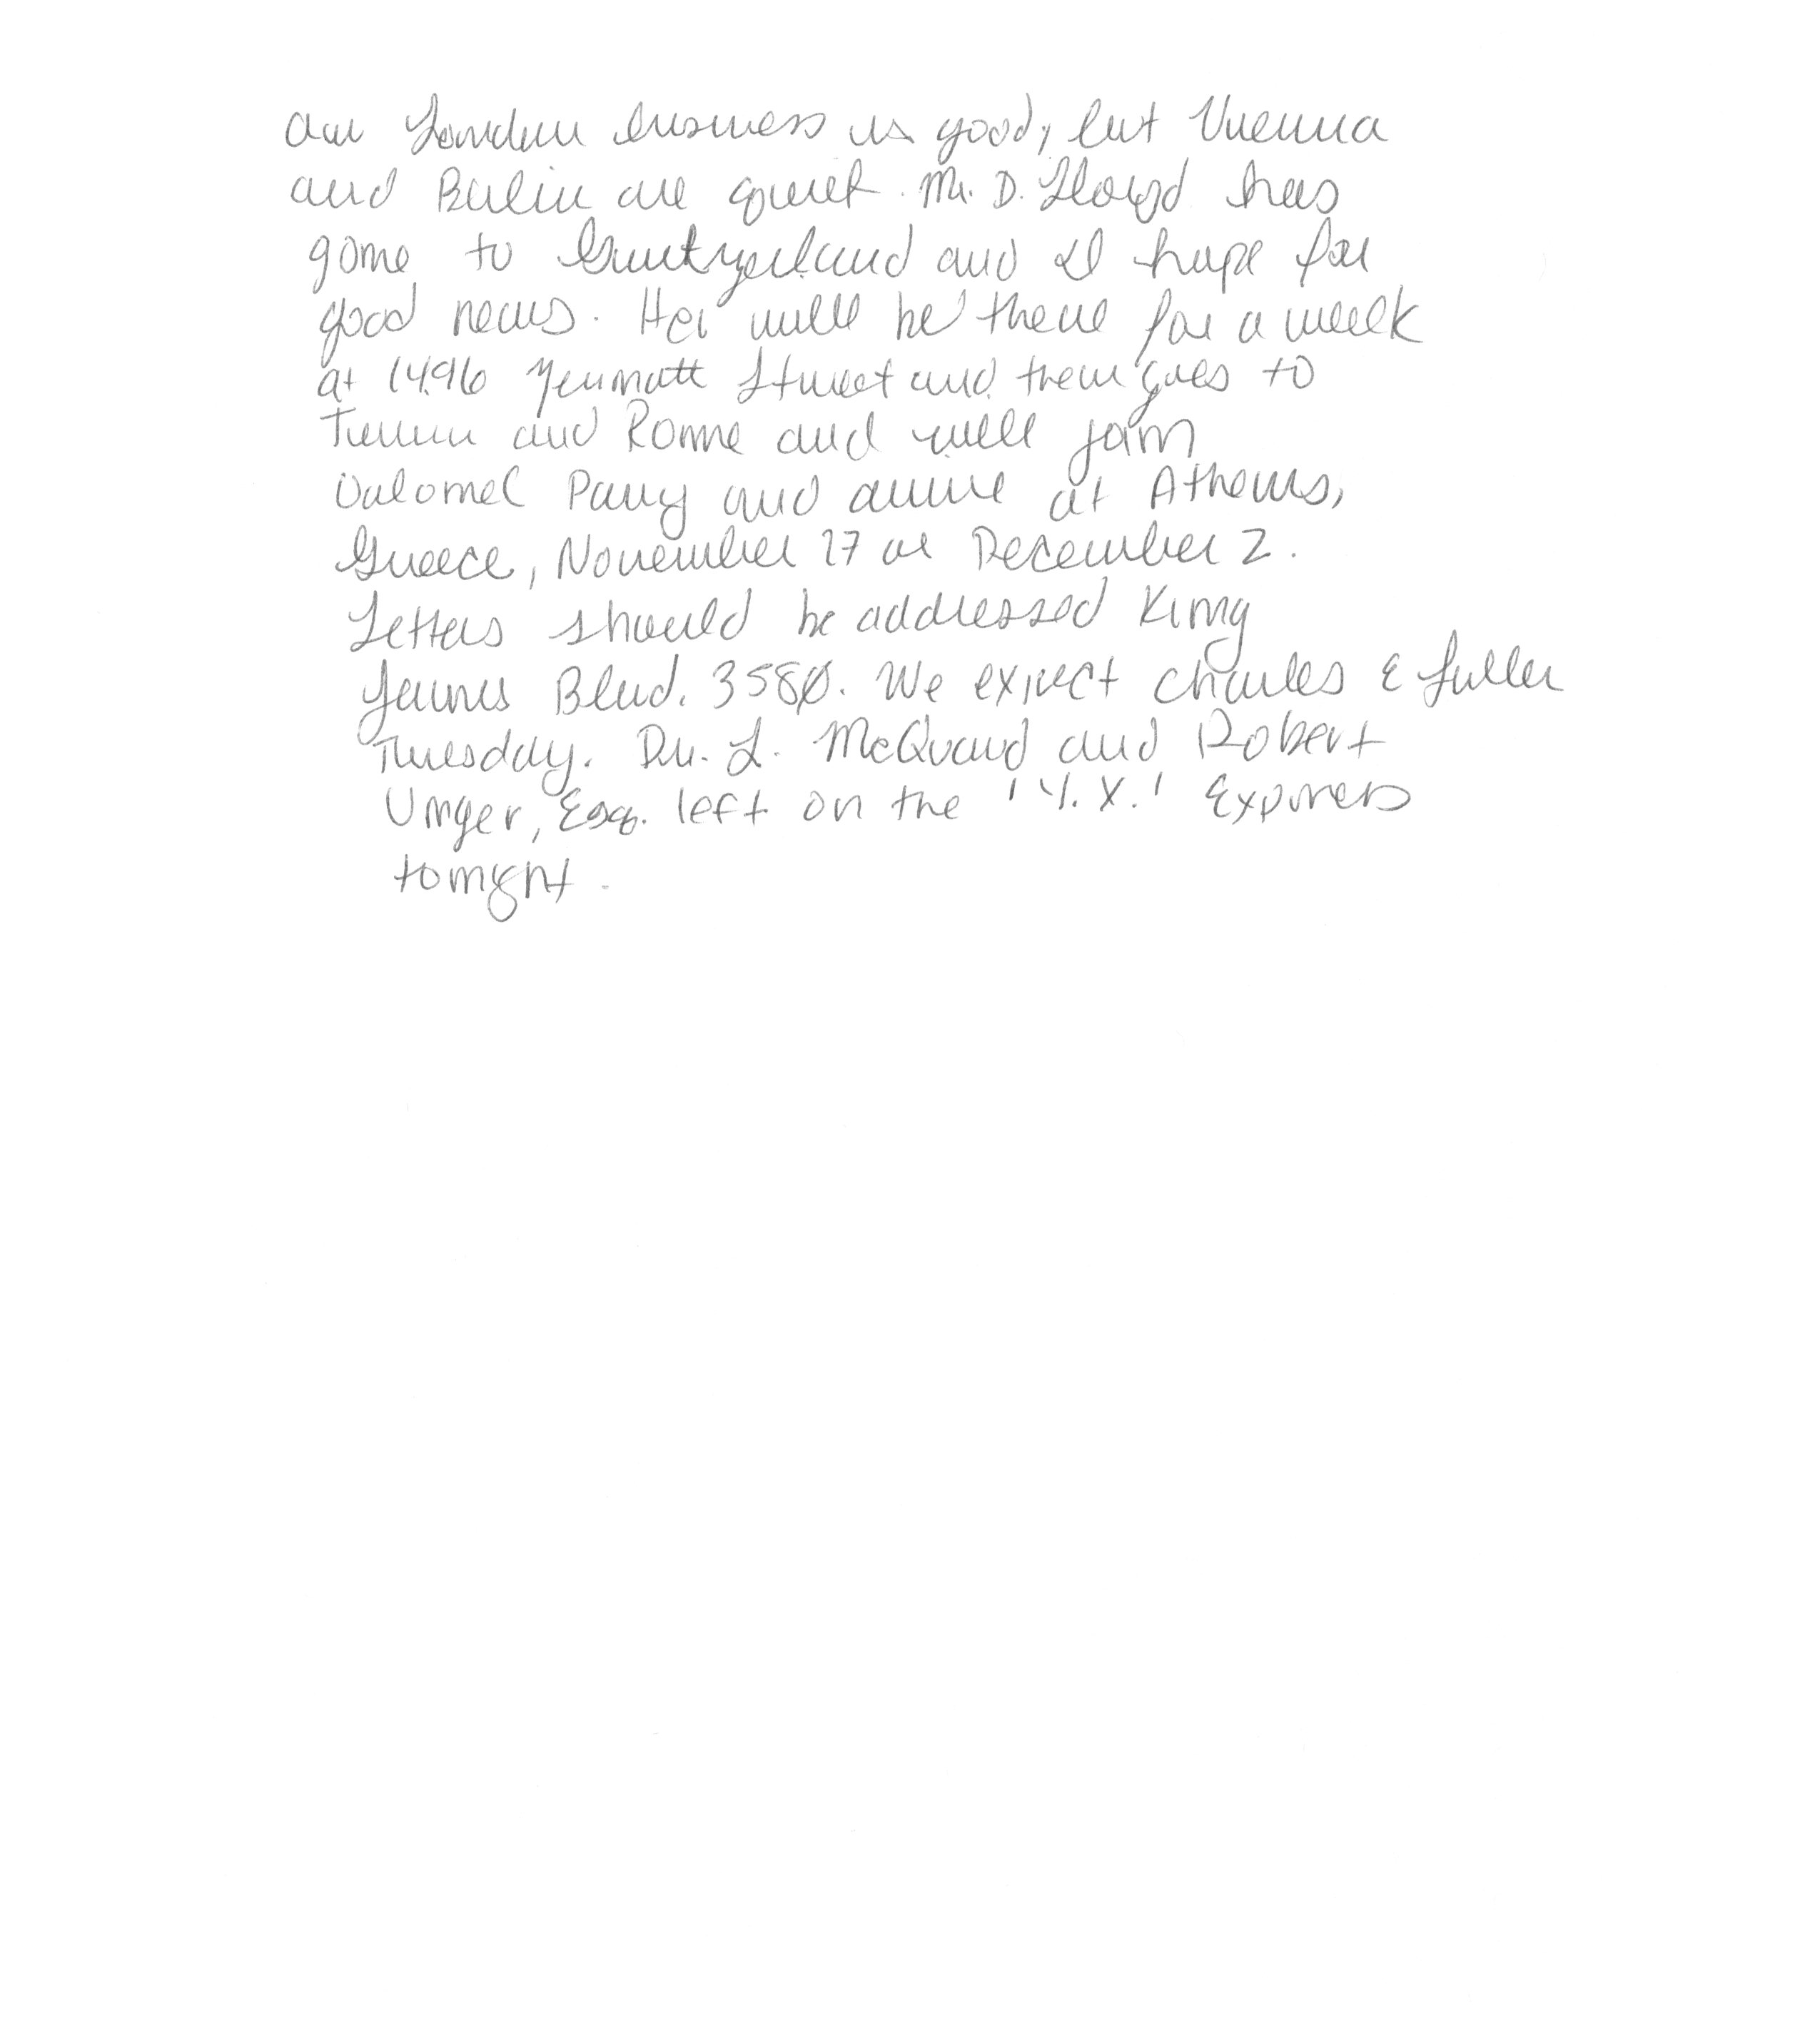 Our London business is good, but Vienna
and Berlin are quiet. Mr. D. Lloyd has
gone to Switzerland and I hope for
good news. He will be there for a week
at 1496 Zermatt Street and then goes to
Turin and Rome and will join
Colonel Parry and arrive at Athens,
Greece, November 27 or December 2.
Letters should be addressed King
James Blvd. 3580. We expect Charles E Fuller
Tuesday. Dr. L. McQuaid and Robert
Unger, Esq. left on the 'Y.X.' Express
tonight.